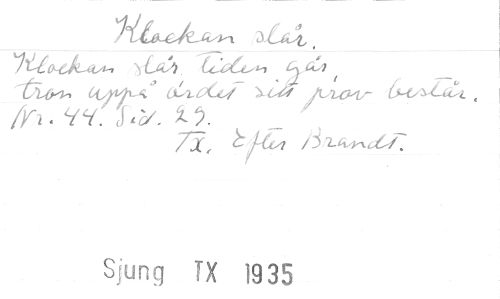 Klockan slår.
Klockan slår, tiden går,
tron uppå ordet sitt prov består.
Nr. 44. Sid. 29.
Tx. Efter Brandt.
Sjung TX 1935